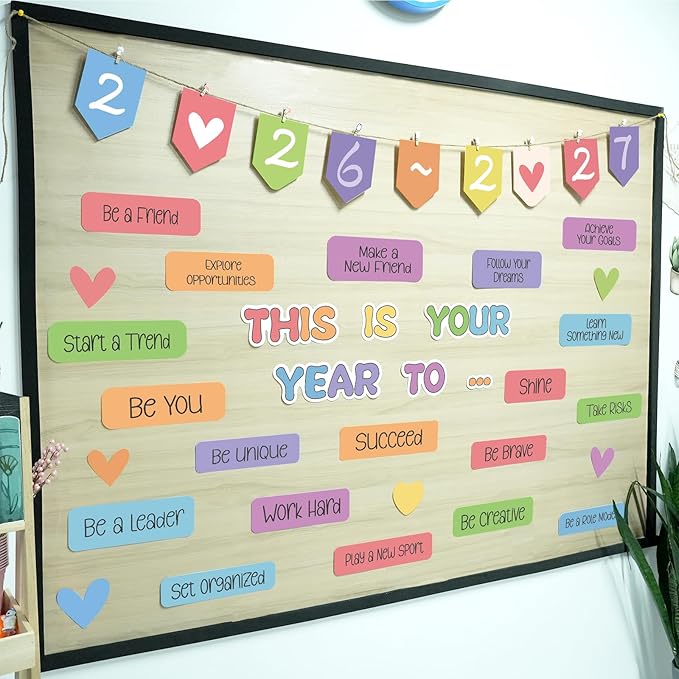 2♥26~2♥27
Be a Friend
Explore
Opportunities
Make a
New Friend
Follow Your
Dreams
Achieve
Your Goals
Start a Trend
THIS IS YOUR
YEAR TO ...
Learn
Something New
Be You
Shine
Take Risks
Be Unique
Succeed
Be Brave
Be a Leader
Work Hard
Be Creative
Be a Role Model
Play a New Sport
Set Organized